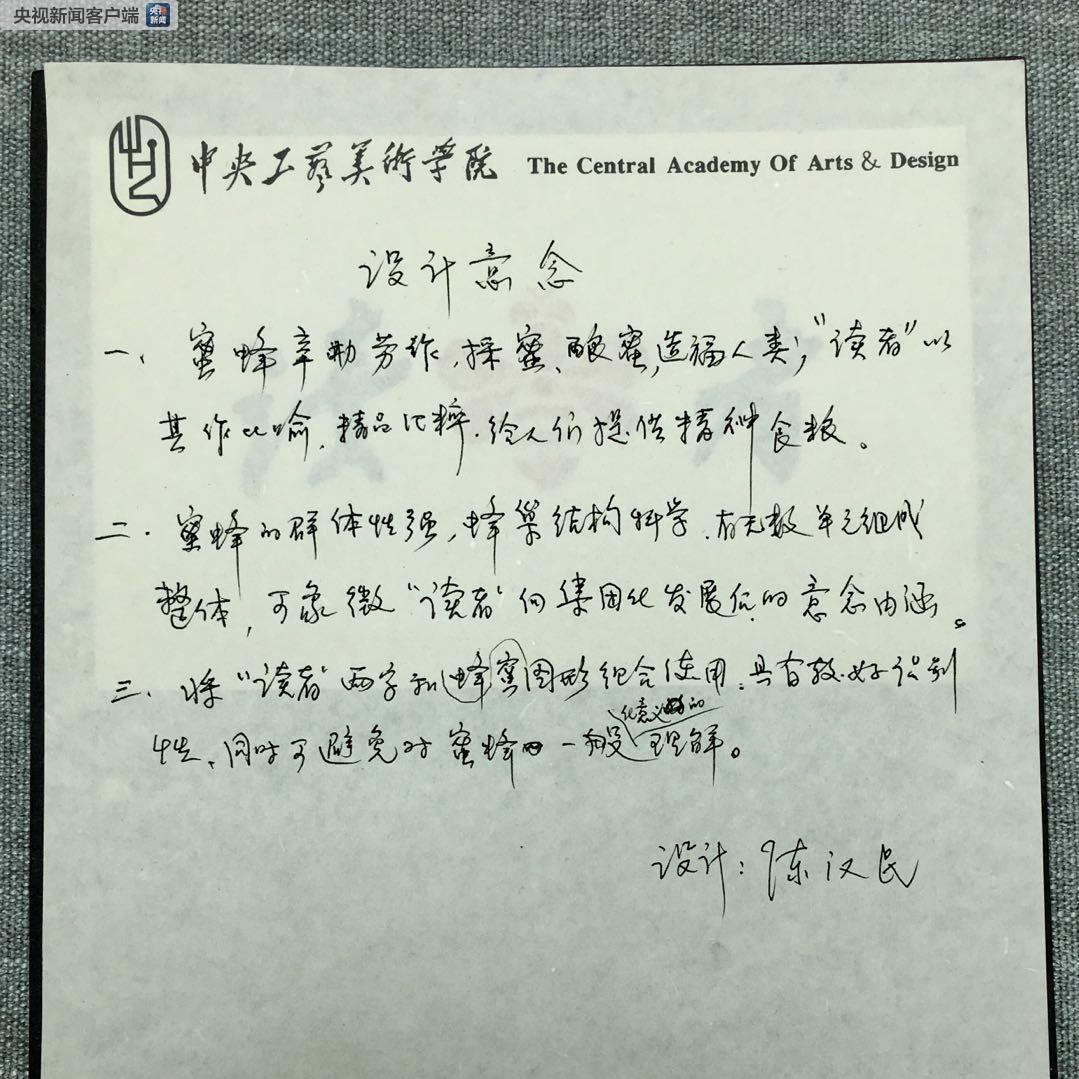 央视新闻客户端 央视新闻
中央工艺美术学院 The Central Academy Of Arts & Design
设计意念
一、蜜蜂辛勤劳作,採蜜、酿蜜,造福人类;“读者”以
其作比喻,精品化粹,给人们提供精神食粮。
二、蜜蜂的群体性强,蜂巢结构科学,有无数单元组成
整体,可象征“读者”向集团化发展后的意念内涵。
三、将“读者”两字和蜂蜜图形组合使用,具有较好识别
化意义的
性、同时可避免对蜜蜂一般理解。
设计:陈汉民